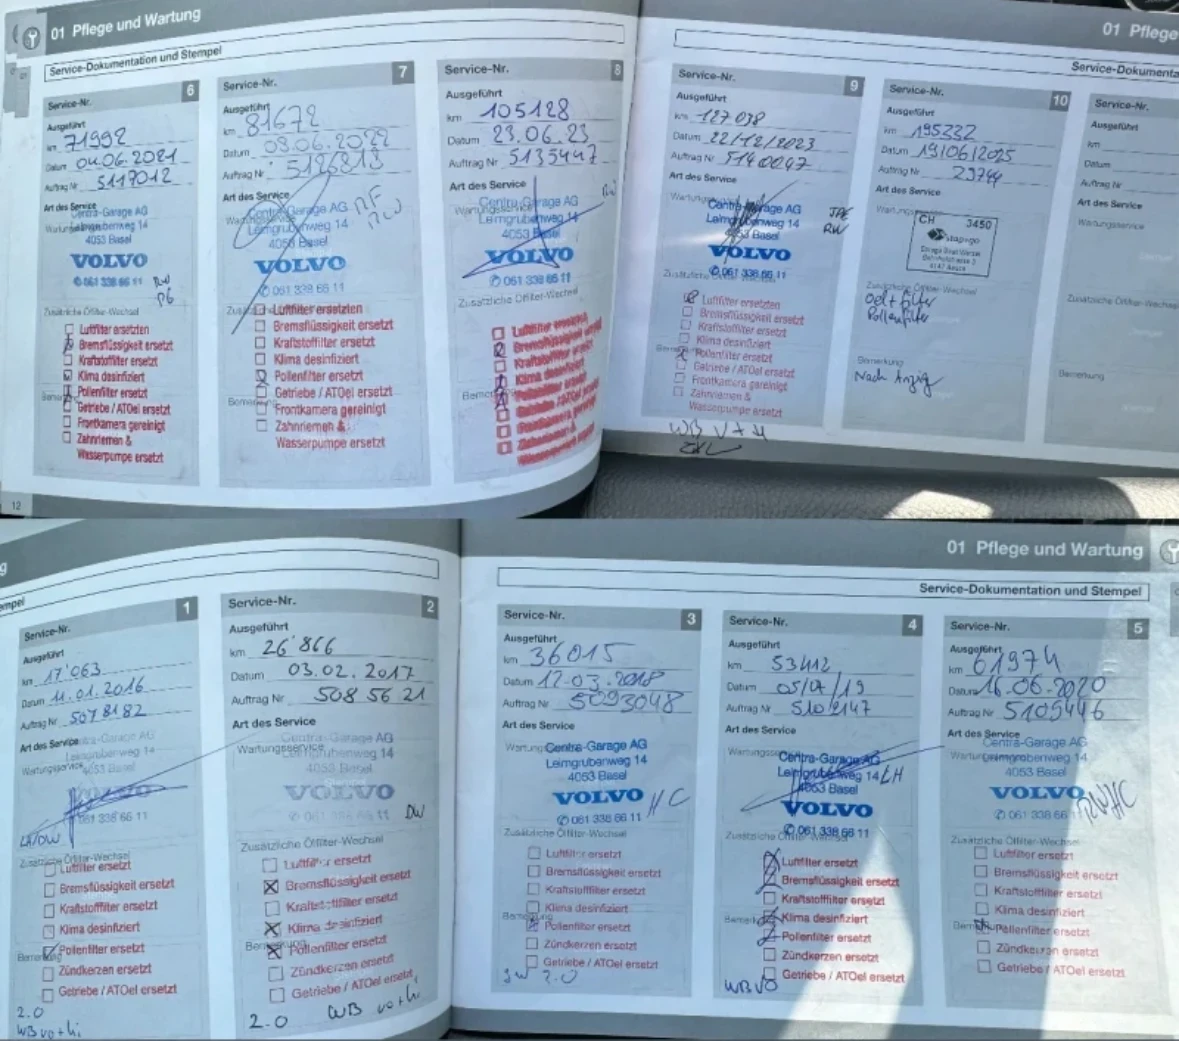 01 Pflege und Wartung
Service-Dokumentation und Stempel
Service-Nr. 6
Ausgeführt
km 71992
Datum 04.06.2021
Auftrag Nr 5117012
Art des Service
Centra-Garage AG
Leimgrubenweg 14
4053 Basel
VOLVO
✆ 061 338 66 11
Zusätzliche Ölfilter-Wechsel
Luftfilter ersetzten
Bremsflüssigkeit ersetzt
Kraftstofffilter ersetzt
Klima desinfiziert
Pollenfilter ersetzt
Getriebe / ATOel ersetzt
Frontkamera gereinigt
Zahnriemen &
Wasserpumpe ersetzt
12
Service-Nr. 7
Ausgeführt
km 81672
Datum 08.06.2022
Auftrag Nr 5126813
Art des Service
Centra-Garage AG
Leimgrubenweg 14
4053 Basel
VOLVO
✆ 061 338 66 11
Luftfilter ersetzten
Bremsflüssigkeit ersetzt
Kraftstofffilter ersetzt
Klima desinfiziert
Pollenfilter ersetzt
Getriebe / ATOel ersetzt
Frontkamera gereinigt
Zahnriemen &
Wasserpumpe ersetzt
Service-Nr. 8
Ausgeführt
km 105128
Datum 23.06.23
Auftrag Nr 5135447
Art des Service
Centra-Garage AG
Leimgrubenweg 14
4053 Basel
VOLVO
✆ 061 338 66 11
Zusätzliche Ölfilter-Wechsel
Luftfilter ersetzt
Bremsflüssigkeit ersetzt
Kraftstofffilter ersetzt
Klima desinfiziert
01 Pflege
Service-Dokumenta
Service-Nr. 9
Ausgeführt
km 127038
Datum 22/12/2023
Auftrag Nr 5140047
Art des Service
Centra-Garage AG
Leimgrubenweg 14
4053 Basel
VOLVO
✆ 061 338 66 11
Zusätzliche Ölfilter-Wechsel
Luftfilter ersetzten
Bremsflüssigkeit ersetzt
Kraftstofffilter ersetzt
Klima desinfiziert
Pollenfilter ersetzt
Getriebe / ATOel ersetzt
Frontkamera gereinigt
Zahnriemen &
Wasserpumpe ersetzt
WB V + H
Service-Nr. 10
Ausgeführt
km 195332
Datum 19/06/2025
Auftrag Nr 23744
Art des Service
CH 3450
stop+go
Zusätzliche Ölfilter-Wechsel
Oel + Filter
Pollenfilter
Bemerkung
Nach Anzeig
Service-Nr.
Ausgeführt
km
Datum
Auftrag Nr
Art des Service
Wartungsservice
Zusätzliche Ölfilter-Wechse
Bemerkung
g
empel
Service-Nr. 1
Ausgeführt
km 17'063
Datum 11.01.2016
Auftrag Nr 5078182
Art des Service
Centra-Garage AG
Leimgrubenweg 14
4053 Basel
VOLVO
061 338 66 11
Zusätzliche Ölfilter-Wechsel
Luftfilter ersetzt
Bremsflüssigkeit ersetzt
Kraftstofffilter ersetzt
Klima desinfiziert
Pollenfilter ersetzt
Zündkerzen ersetzt
Getriebe / ATOel ersetzt
2.0
WB vo + hi
Service-Nr. 2
Ausgeführt
km 26'866
Datum 03.02.2017
Auftrag Nr 5085621
Art des Service
Centra-Garage AG
Wartungsservice
Leimgrubenweg 14
4053 Basel
VOLVO
✆ 061 338 66 11
DW
Zusätzliche Ölfilter-Wechsel
Luftfilter ersetzt
Bremsflüssigkeit ersetzt
Kraftstofffilter ersetzt
Klima desinfiziert
Pollenfilter ersetzt
Zündkerzen ersetzt
Getriebe / ATOel ersetzt
2.0 WB vo + hi
01 Pflege und Wartung
Service-Dokumentation und Stempel
Service-Nr. 3
Ausgeführt
km 36015
Datum 12.03.2018
Auftrag Nr 5093048
Art des Service
Centra-Garage AG
Leimgrubenweg 14
4053 Basel
VOLVO
HC
✆ 061 338 66 11
Zusätzliche Ölfilter-Wechsel
Luftfilter ersetzt
Bremsflüssigkeit ersetzt
Kraftstofffilter ersetzt
Klima desinfiziert
Pollenfilter ersetzt
Zündkerzen ersetzt
Getriebe / ATOel ersetzt
2.0
Service-Nr. 4
Ausgeführt
km 53412
Datum 05/04/19
Auftrag Nr 5102147
Art des Service
Centra-Garage AG
Leimgrubenweg 14 LH
4053 Basel
VOLVO
✆ 061 338 66 11
Luftfilter ersetzt
Bremsflüssigkeit ersetzt
Kraftstofffilter ersetzt
Klima desinfiziert
Pollenfilter ersetzt
Zündkerzen ersetzt
Getriebe / ATOel ersetzt
WB VO
Service-Nr. 5
Ausgeführt
km 61974
Datum 16.06.2020
Auftrag Nr 5109446
Art des Service
Centra-Garage AG
Leimgrubenweg 14
4053 Basel
VOLVO
✆ 061 338 66 11
Zusätzliche Ölfilter-Wechsel
Luftfilter ersetzt
Bremsflüssigkeit ersetzt
Kraftstofffilter ersetzt
Klima desinfiziert
Pollenfilter ersetzt
Zündkerzen ersetzt
Getriebe / ATOel ersetzt